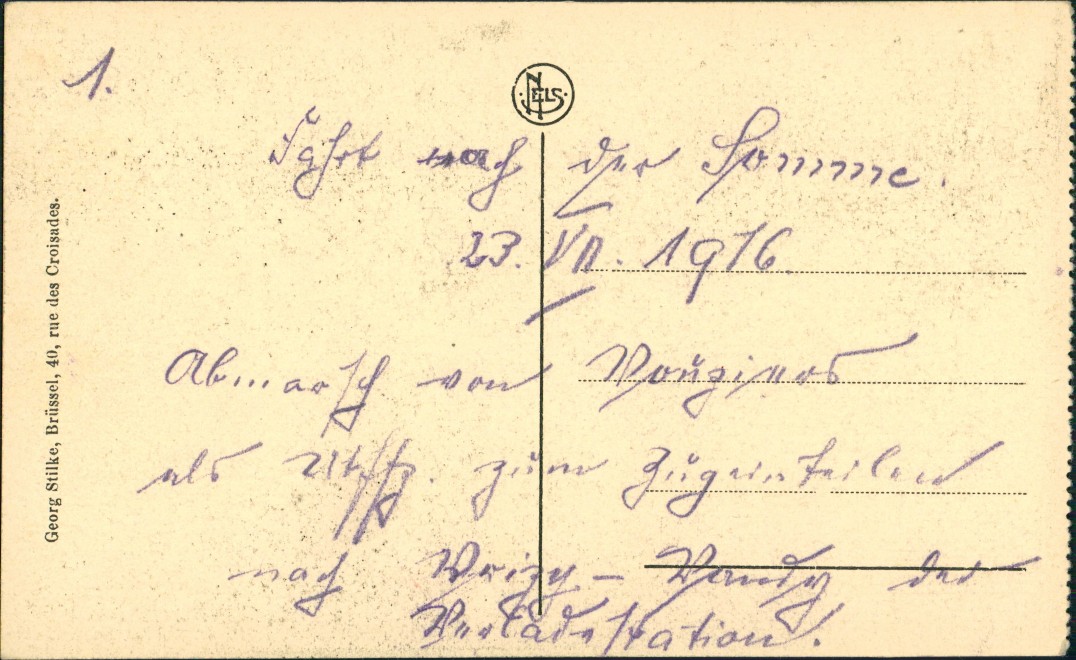 1.
NELS
Fahrt nach der Somme.
23. VII. 1916.
Abmarsch von Vouziers
als Uffz. zum Zugeinteilen
nach Vrizy - Vandy der
Verladestation.
Georg Stilke, Brüssel, 40, rue des Croisades.